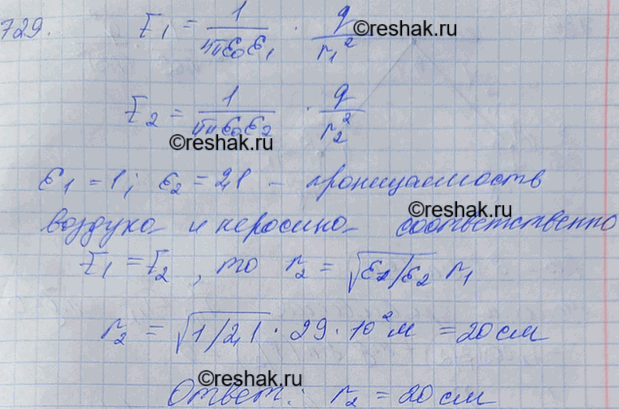 729. E₁ = 1/(4πε₀ε₁) · q/r₁²
©reshak.ru
E₂ = 1/(4πε₀ε₂) · q/r₂²
©reshak.ru
ε₁ = 1; ε₂ = 2,1 - проницаемость
©reshak.ru
воздуха и керосина соответственно
E₁ = E₂, то r₂ = √(ε₂/ε₂) r₁
©reshak.ru
r₂ = √(1/2,1) · 29 · 10² м = 20 см
©reshak.ru
Ответ: r₂ = 20 см